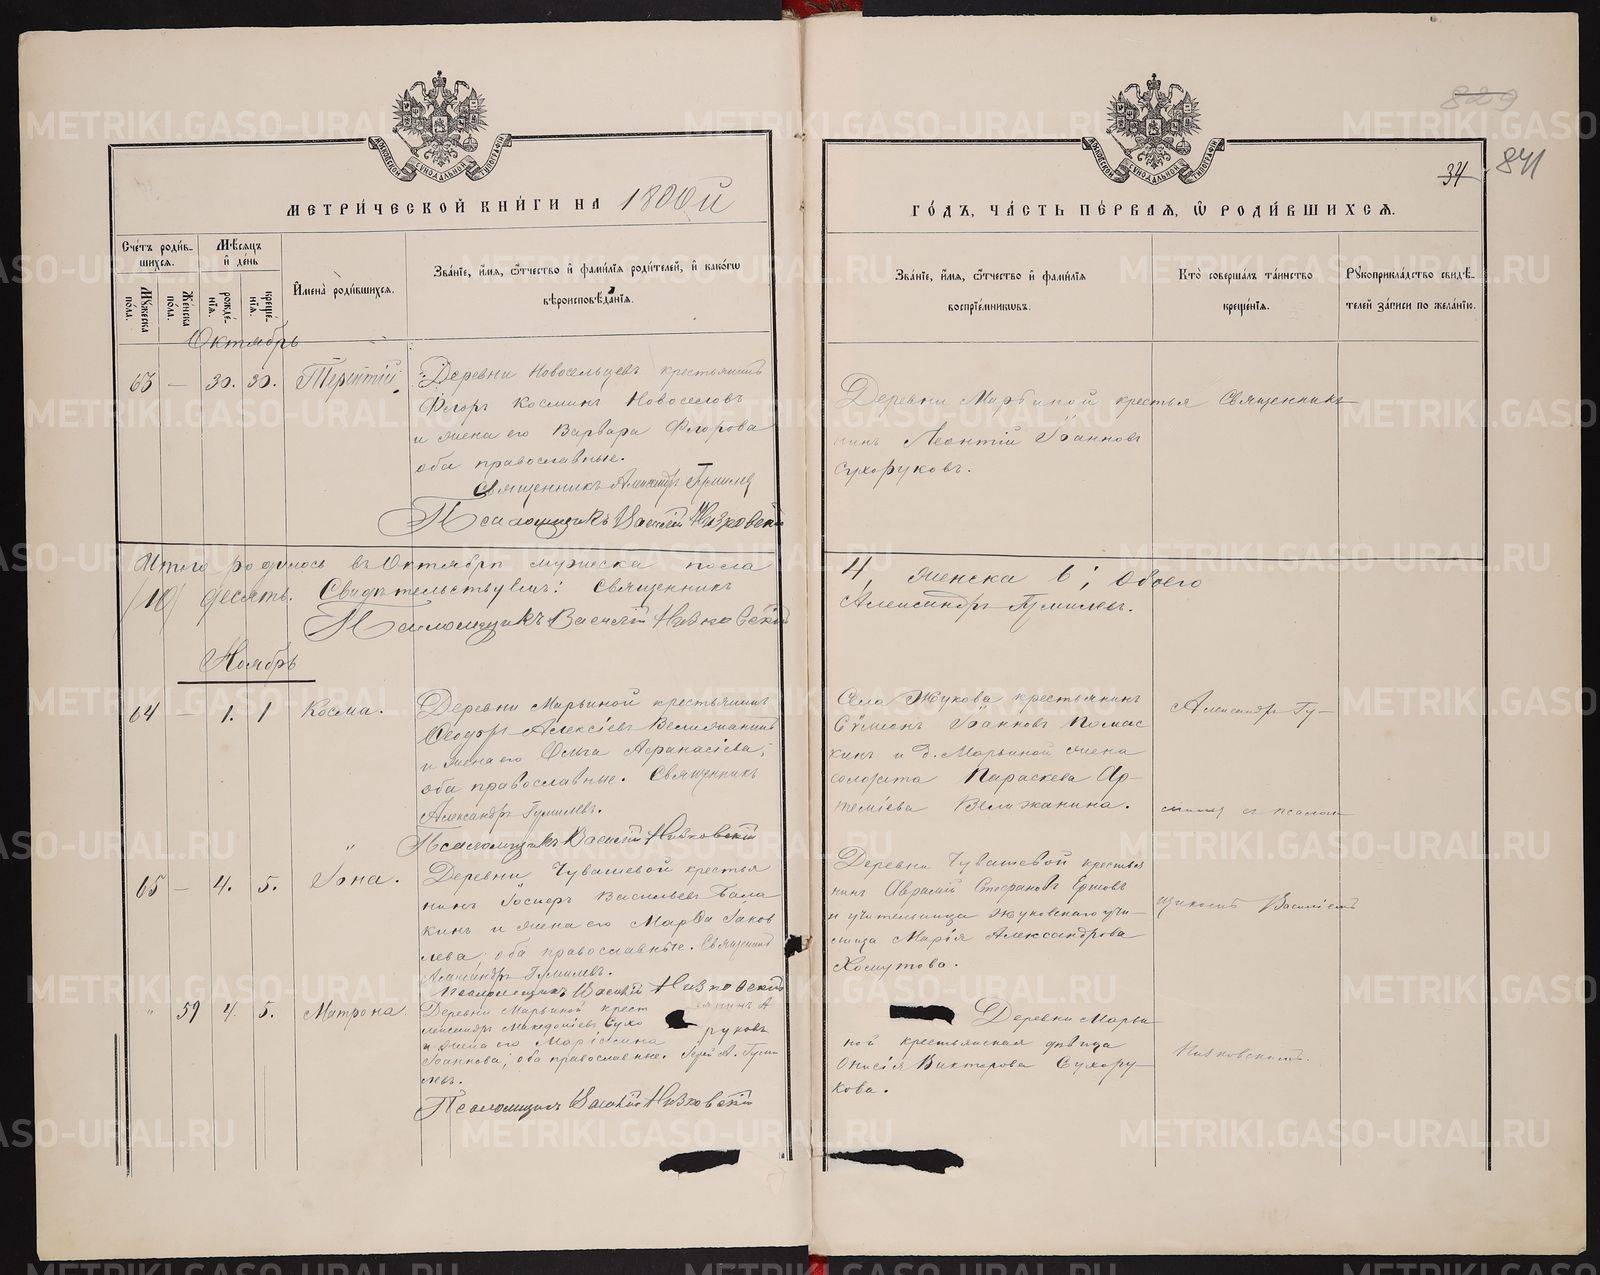 829
34 841
МЕТРИЧЕСКОЙ КНИГИ НА 1800й
ГОДЪ, ЧАСТЬ ПЕРВАЯ, Ѿ РОДИВШИХСЯ.
Счетъ родившихся.
Мужеска пола.
Женска пола.
Мѣсяцъ и день
рожденія.
крещенія.
Имена родившихся.
Званіе, имя, отчество и фамилія родителей, и какогѡ вѣроисповѣданія.
Званіе, имя, отчество и фамилія воспріемниковъ.
Кто совершалъ таинство крещенія.
Рукоприкладство свидѣтелей записи по желанію.
Октябрь
63 — 30. 30. Терентій
Деревни Новосельцевъ крестьянинъ
Флоръ Косминъ Новоселовъ
и жена его Варвара Флорова
оба православные.
Священникъ Александръ Гумилев
Псаломщикъ Василій Низковскій
Деревни Марьиной крестья
нинъ Леонтій Іоанновъ
Сухоруковъ.
Священникъ
Итого родилось въ Октябрѣ мужеска пола
4, женска 6; обоего
/10/ десять. Свидѣтельствуемъ: Священникъ
Александръ Гумилевъ.
Псаломщикъ Василій Низковскій
Ноябрь
64 — 1. 1 Косма.
Деревни Марьиной крестьянинъ
Ѳеодоръ Алексіевъ Велижанинъ
и жена его Ольга Афанасіева,
оба православные. Священникъ
Александръ Гумилевъ.
Псаломщикъ Василій Низковскій
Села Жукова крестьянинъ
Сѵмеонъ Іоанновъ Помас
кинъ и д. Марьиной жена
солдата Параскева Ар-
темiева Велижанина.
Александръ Гу-
съ псалом
65 — 4. 5. Іона.
Деревни Чувашевой крестья
нинъ Іосифъ Васильевъ Бала
кинъ и жена его Марѳа Іаков
лева, оба православные. Священникъ
Александръ Гумилевъ.
Псаломщикъ Василій Низковскій
Деревни Чувашевой крестья
нинъ Авраамій Стефановъ Ершовъ
и учительница Жуковскаго учи-
лища Марія Александрова
Хомутова.
щикомъ Василіемъ
" 59 4. 5. Матрона
Деревни Марьиной крест янинъ А
лександръ Македоніевъ Сухо руковъ
и жена его Маріамна
Іоаннова, оба православные. Іерей А. Гуми
левъ.
Псаломщикъ Василій Низковскій
Деревни Марьи-
ной крестьянская дѣвица
Онисія Викторова Сухору-
кова.
Низковскимъ.